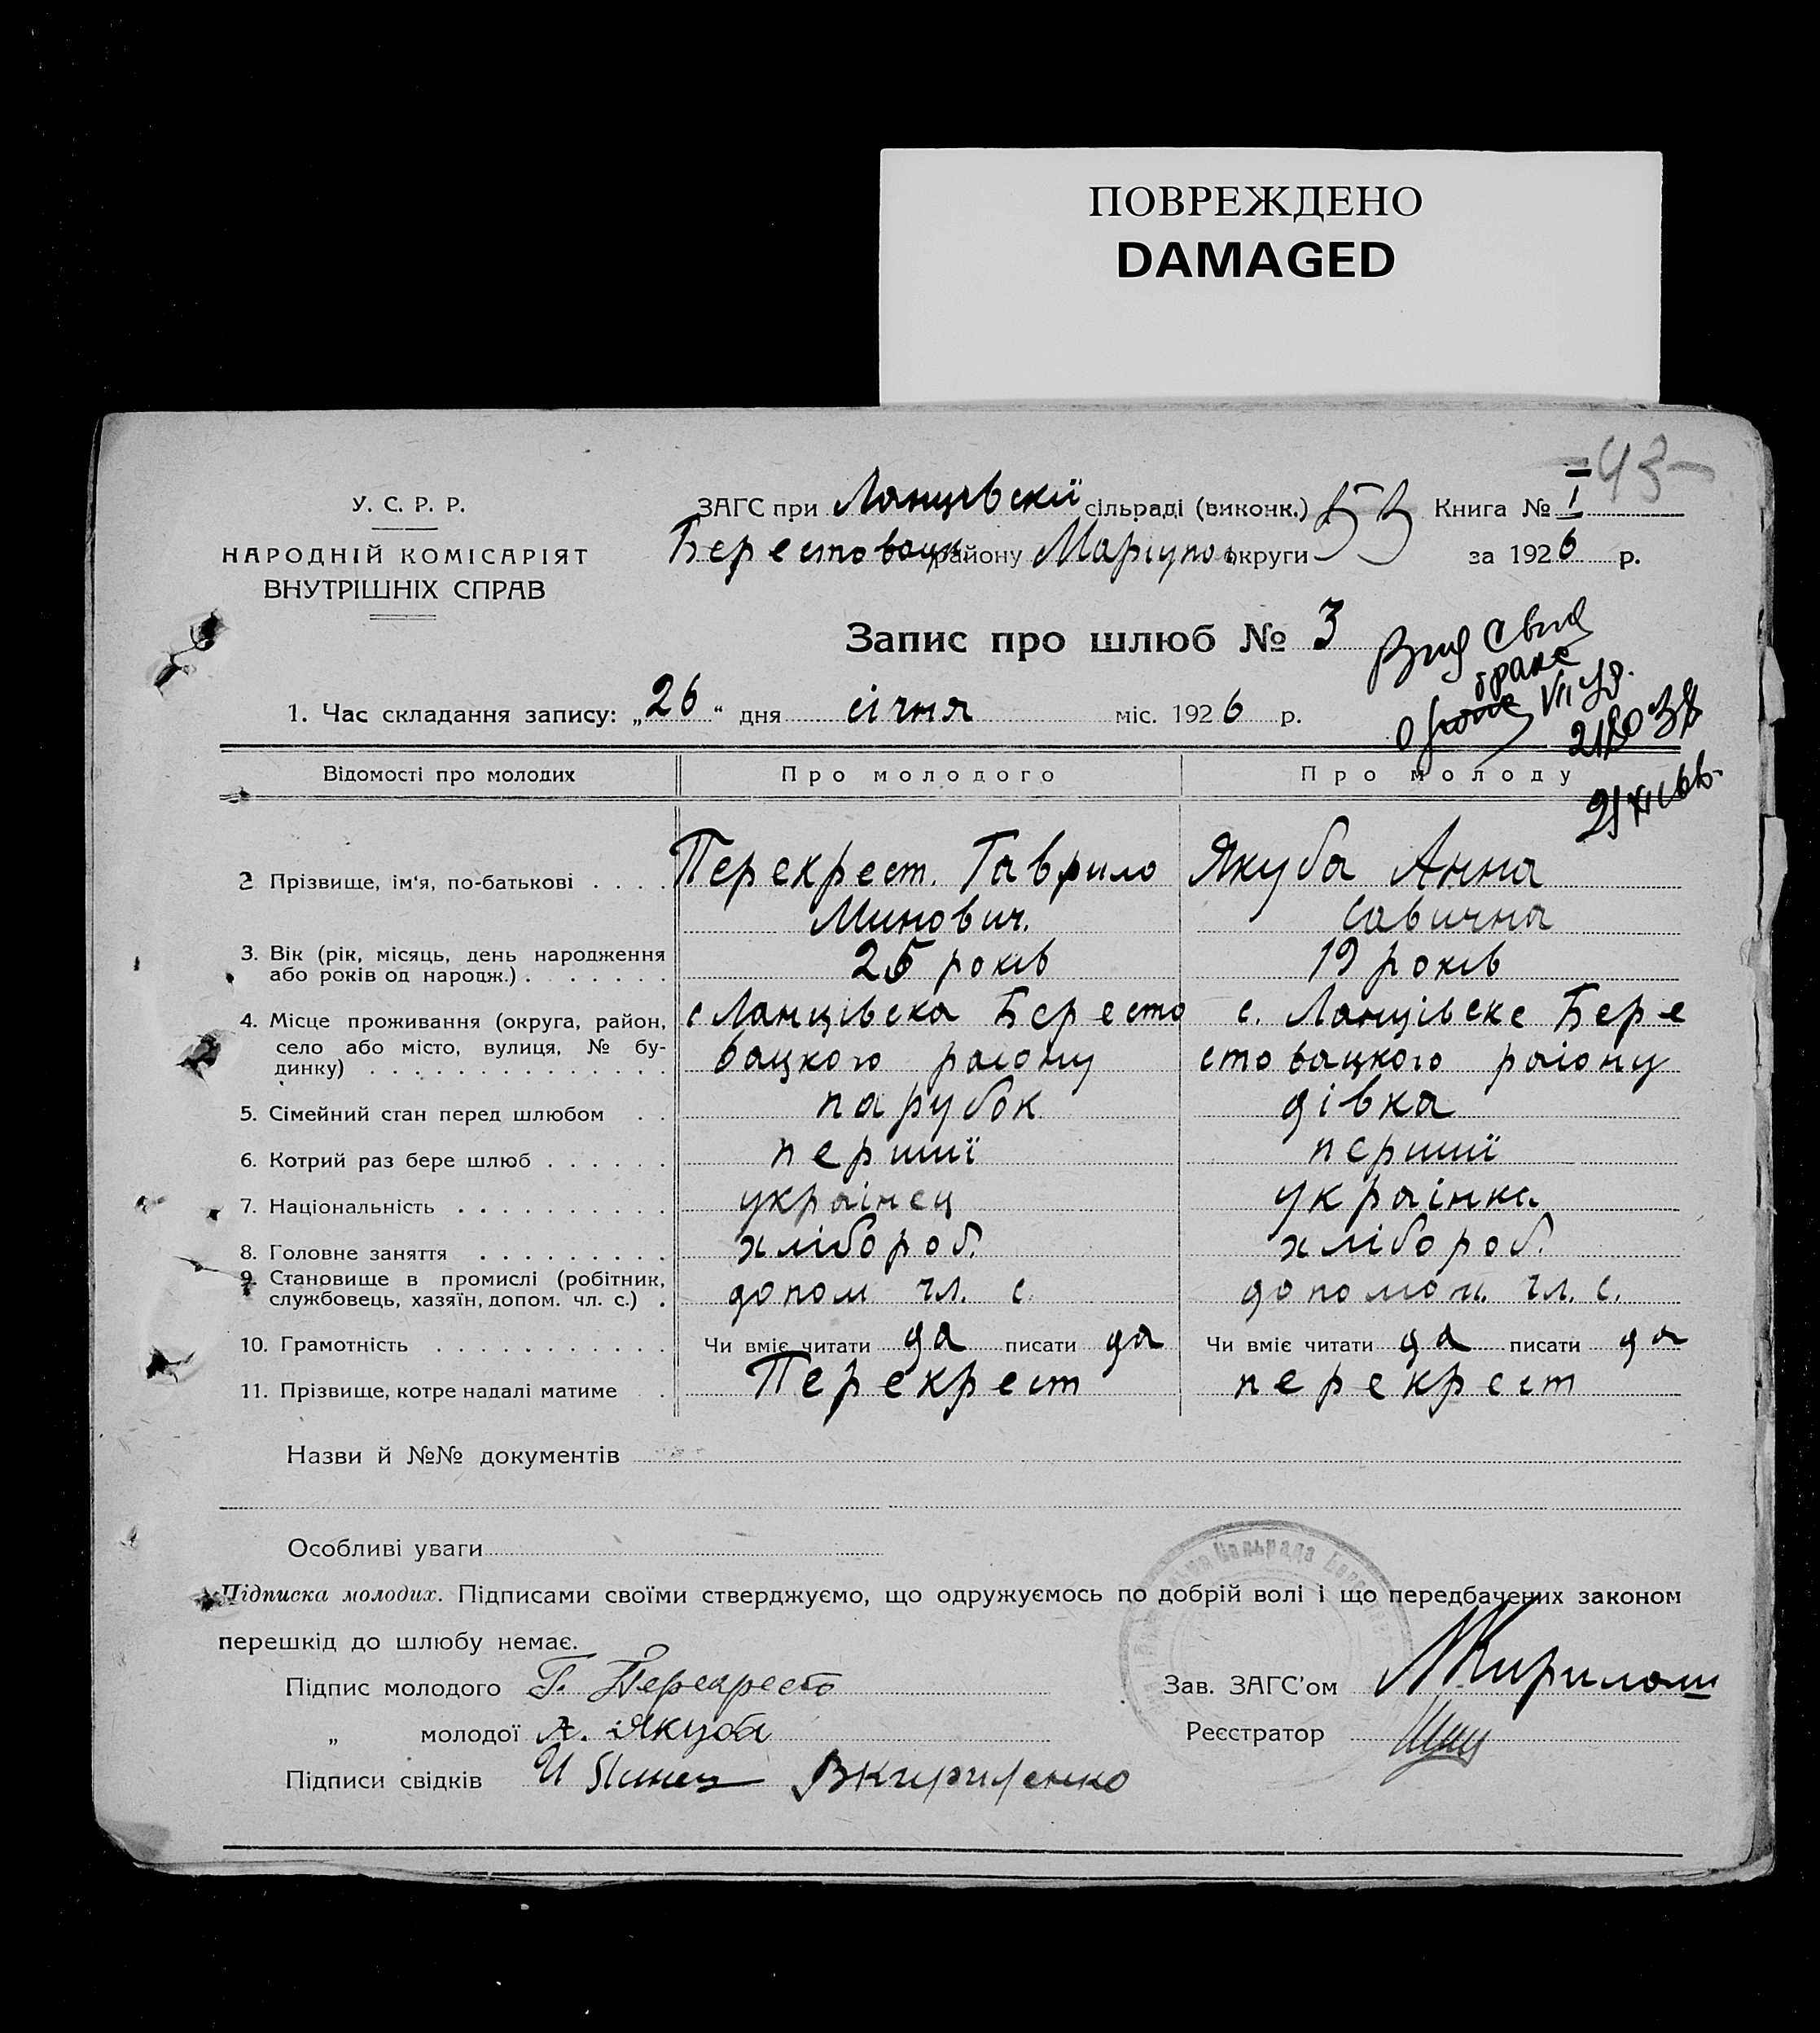 ПОВРЕЖДЕНО
DAMAGED
43
У. С. Р. Р.
НАРОДНІЙ КОМІСАРІЯТ
ВНУТРІШНІХ СПРАВ
ЗАГС при Ланцівскій сільраді (виконк.) Книга № I
Берестовацк району Маріупол округи за 1926 р.
Запис про шлюб № 3
1. Час складання запису: „26“ дня січня міс. 1926 р.
Відомості про молодих Про молодого Про молоду
2 Прізвище, ім‘я, по-батькові . . . . Перекрест. Гаврило Якуба Анна
Минович. Савична
3. Вік (рік, місяць, день народження
або років од нароцж.) . . . . . . . 25 років 19 років
4. Місце проживання (округа, район, с Ланцівска Бересто с. Ланцівске Бере
село або місто, вулиця, № бу-
динку) . . . . . . . . . . . . . . вацкого раіону стовацкого раіону
5. Сімейний стан перед шлюбом . . парубок дівка
6. Котрий раз бере шлюб . . . . . . перший перший
7. Національність . . . . . . . . . . украінец украінка
8. Головне заняття . . . . . . . . . хлібороб. хлібороб.
9. Становище в промислі (робітник,
службовець, хазяїн, допом. чл. с.) . допом чл. с. допомоч. чл. с.
10. Грамотність . . . . . . . . . . . Чи вміє читати да писати да Чи вміє читати да писати да
11. Прізвище, котре надалі матиме . Перекрест перекрест
Назви й №№ документів
Особливі уваги
Підписка молодих. Підписами своїми стверджуємо, що одружуємось по добрій волі і що передбачених законом
перешкід до шлюбу немає.
Підпис молодого Г. Перекрестъ Зав. ЗАГС’ом
„ молодої А. Якуба Реєстратор
Підписи свідків В Кириленко